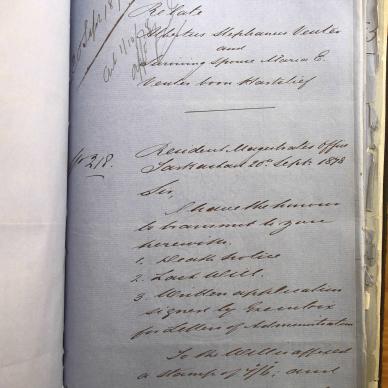 Re Late
Albertus Stephanus Venter
and
Surviving Spouse Maria E.
Venter born Hartlief
No 218.
Resident Magistrates Office
Tarkastad 20th Sept. 1878
Sir,
I have the honour
to transmit to you
herewith.
1. Death Notice
2. Last Will.
3. Written application
signed by Executrix
for Letters of Administration
To the Will is affixed
a stamp of